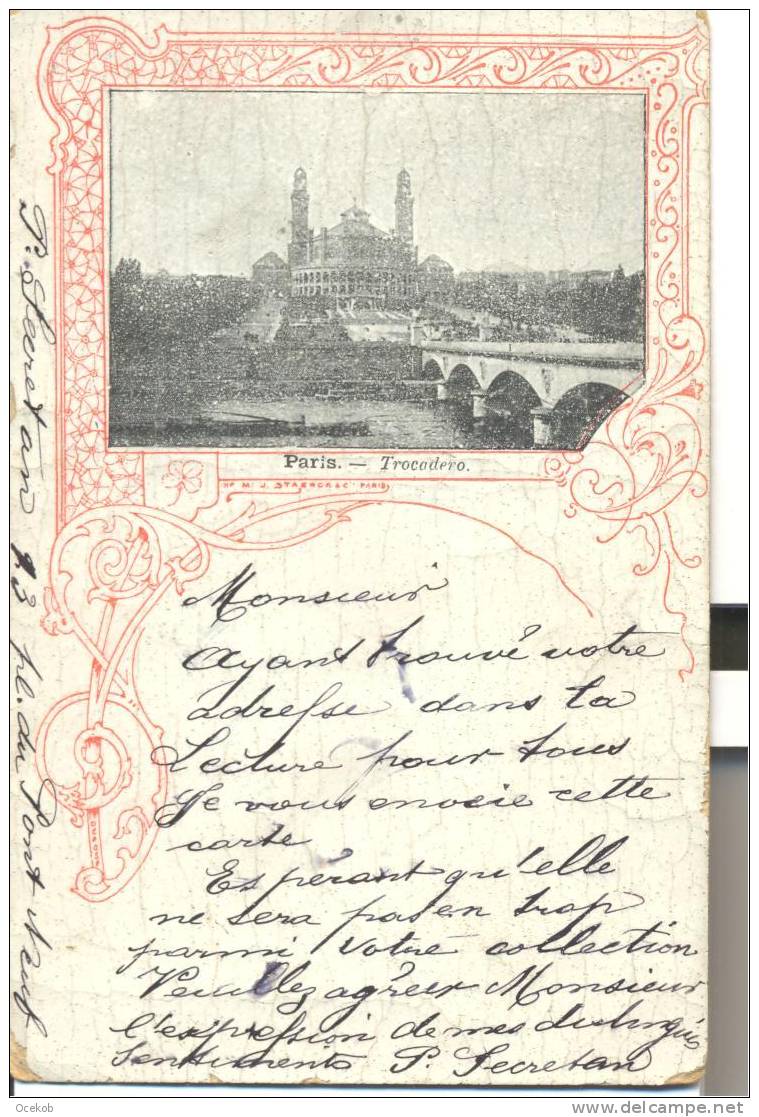 Paris. — Trocadero.
Mon J. STAERCK & Cie PARIS
Monsieur
Ayant trouvé votre
adresse dans la
Lecture pour tous
Je vous envoie cette
carte
Espérant qu'elle
ne sera pas en trop
parmi votre collection
Veuillez agréer Monsieur
l'expression de mes distingués
sentiments P. Secretan
P. Secretan 13 pl. du Pont Neuf
DEPOSE
Ocekob
http://www.delcampe.net